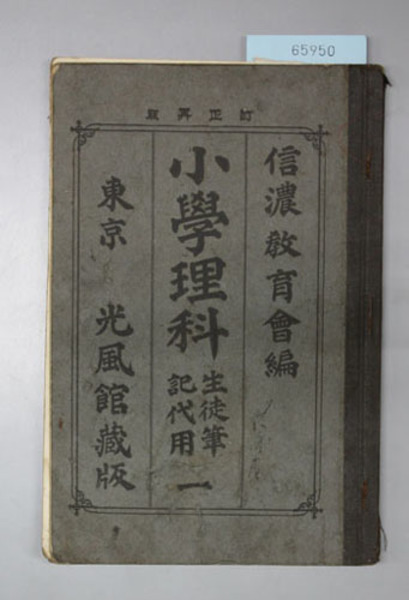 65950
訂正再版
信濃教育會編
小學理科
生徒筆
記代用
一
東京 光風館藏版